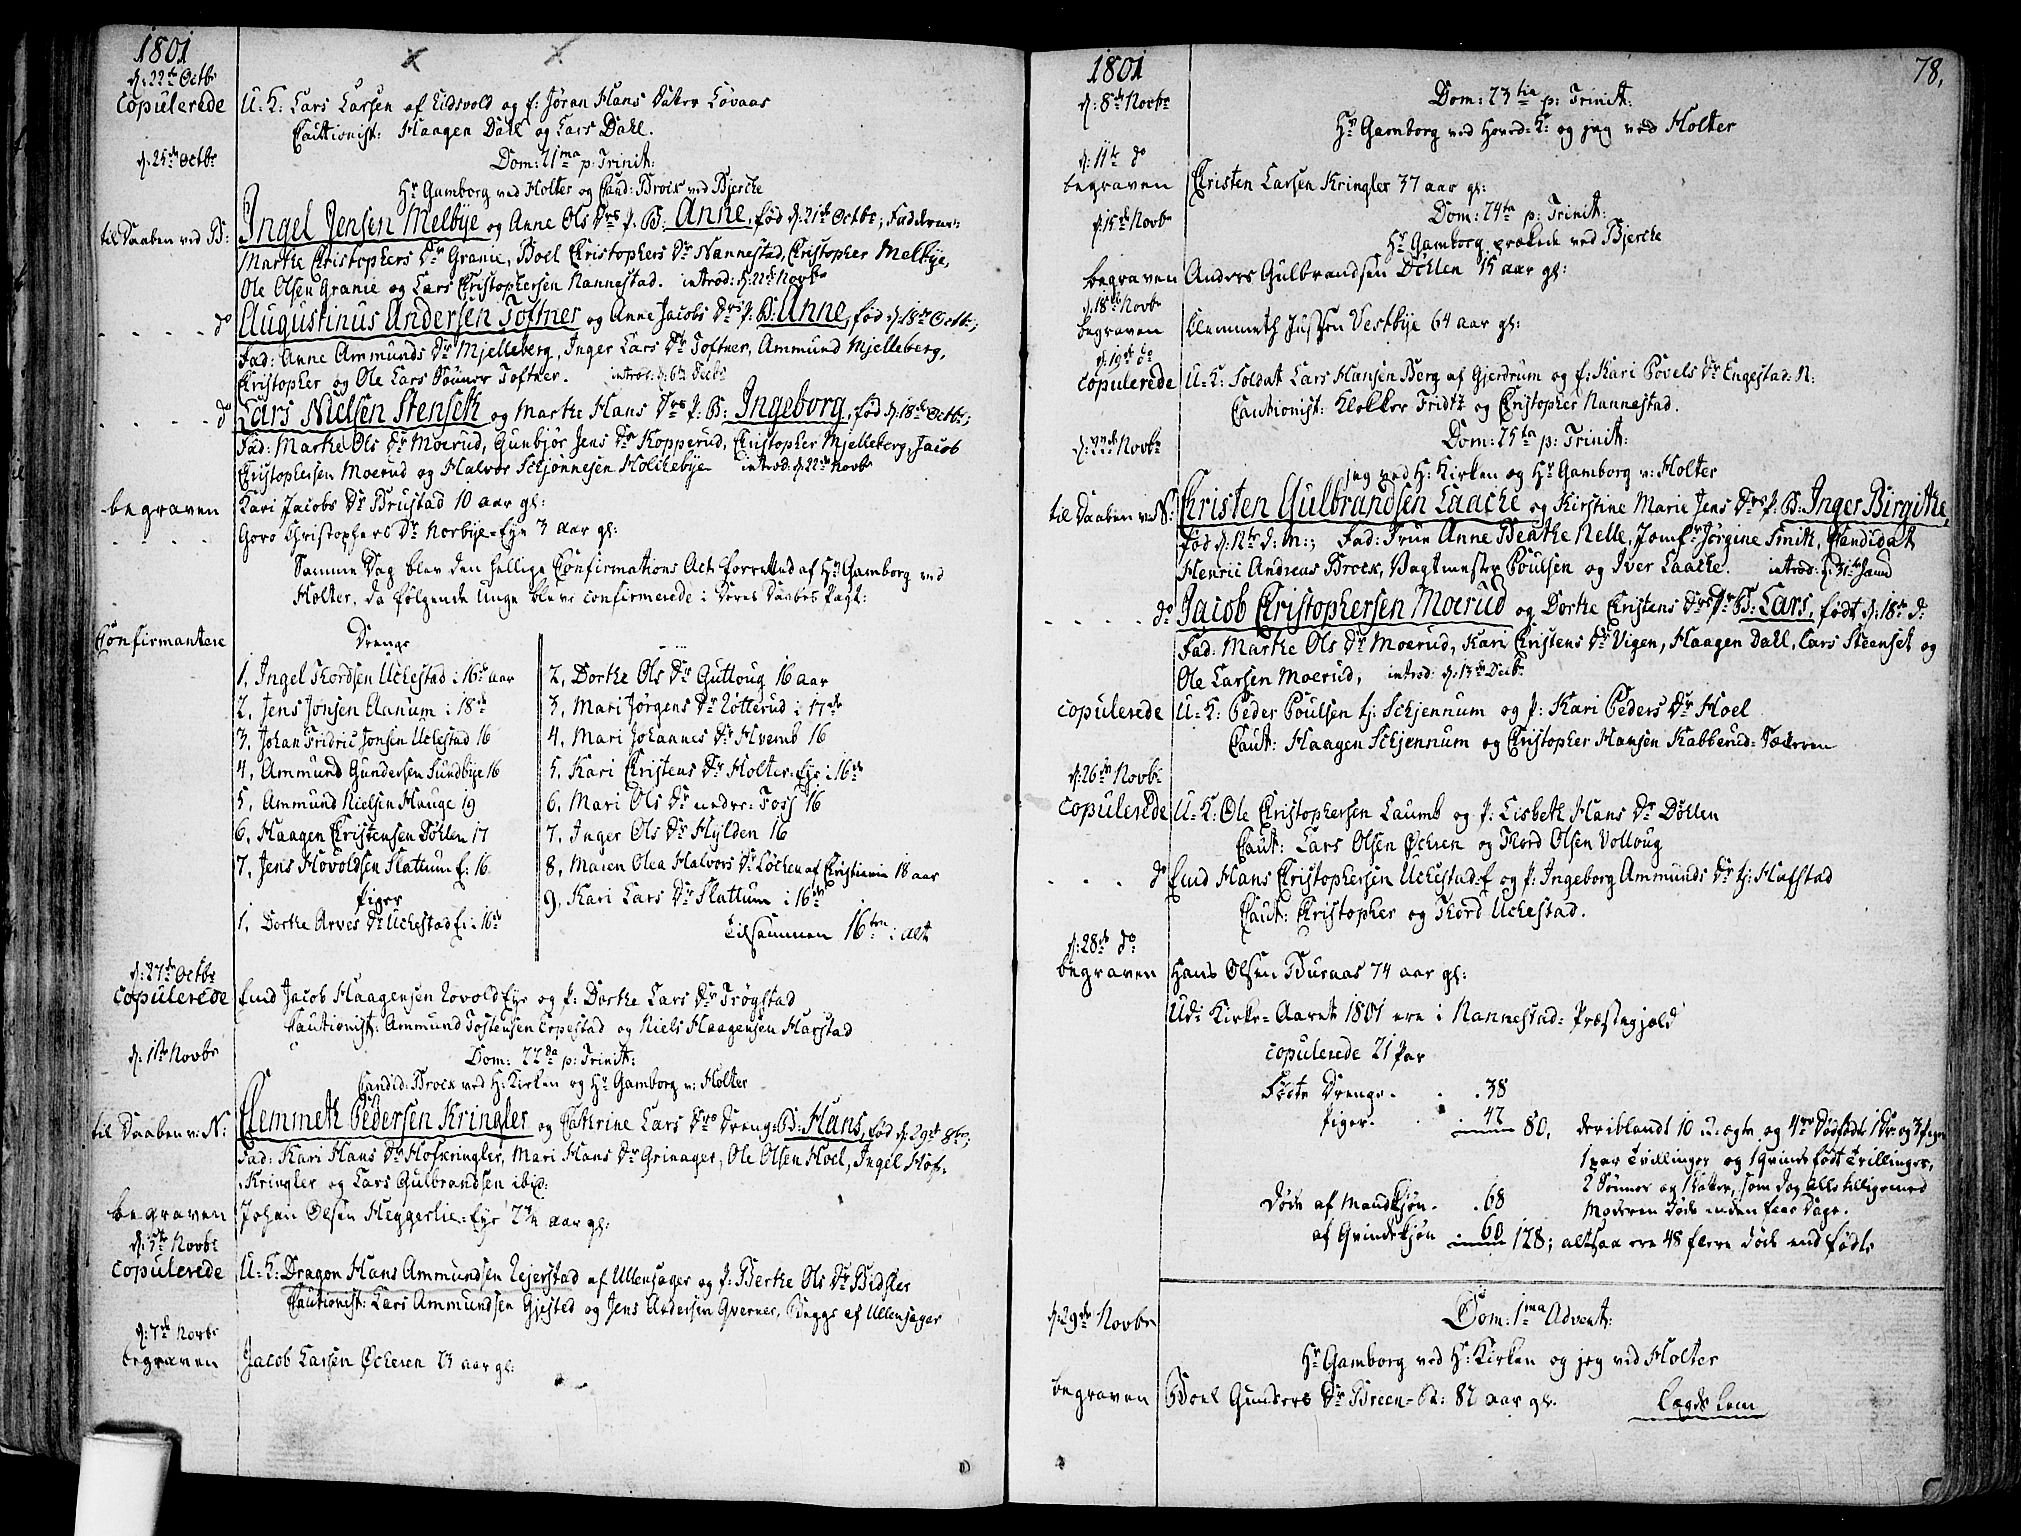 1801
d: 22de Octbr
copulerede U-K: Lars Larsen af Eidsvold og f: Jøran Hans Datter Løvaas
Cautionist: Haagen Dahl og Lars Dahl.
d: 25de Octbr Dom: 21ma p: Trinit:
Hr Gamborg ved Holter og Cand: Brock ved Bjercke
til Daaben ved B: Ingel Jensen Melbye og Anne Ols Drs P. B: Anne, fød d: 21de Octbr; Faddere:
Marthe Christophers Dr Granie, Boel Christophers Dr Nannestad, Christopher Melbye,
Ole Olsen Granie og Lars Christophersen Nannestad. introd: d: 22de Novbr
do Augustinus Andersen Toftner og Anne Jacobs Drs P. B: Anne, fød d: 18de Octbr;
Fad: Anne Ammunds Dr Mjelleberg, Inger Lars Dr Toftner, Ammund Mjelleberg,
Christopher og Ole Lars Sønner Toftner. introd: d: 6te Decbr
do Lars Nielsen Stenseth og Marthe Hans Drs P. B: Ingeborg, fød d: 18de Octbr;
Fad: Marthe Ols Dr Moerud, Gunbjør Jens Dr Kopperud, Christopher Mjelleberg, Jacob
Christophersen Moerud og Halvor Schjønnesen Holckebye introd: d: 22de Novbr
begraven Kari Jacobs Dr Brustad 10 aar gl:
Goro Christophers Dr Norbye-Eye 3 aar gl:
Samme Dag blev den hellige Confirmations Act forretted af Hr Gamborg ved
Holter, da følgende Unge bleve confirmerede i Deres Daabes Pagt:
Confirmantere Drenge
1, Ingel Thordsen Uckestad i 16de aar
2, Jens Jonsen Aanum i 18de
3, Johan Fridric Jonsen Uckestad 16
4, Ammund Gundersen Sundbye 16
5, Ammund Nielsen Hauge 19
6, Haagen Christensen Døhlen 17
7, Jens Hovoldsen Slattum E: 16
Piger
1, Dorthe Arves Dr Uckestad E: i 16de
2, Dorthe Ols Dr Gutloug 16 aar
3, Mari Jørgens Dr Rotterud i 17de
4, Mari Johannes Dr Hvemb 16
5, Kari Christens Dr Holter-Eye i 16de
6, Mari Ols Dr nedre-Foss 16
7, Inger Ols Dr Hylden 16
8, Maren Olea Halvors Dr Løcken af Christiania 18 aar
9, Kari Lars Dr Slattum i 16de
Tilsammen 16ten i alt
d: 27de Octbr
copulerede End Jacob Haagensen Rovold Eye og P: Dorthe Lars Dr Trøgstad
Cautionist: Ammund Tostensen Eppestad og Niels Haagensen Harstad
d: 1ste Novbr Dom: 22da p: Trinit:
Candid: Brock ved H: Kirken og Hr Gamborg v: Holter
til Daaben v: N: Clemmeth Pedersen Kringler og Cathrine Lars Drs Drenge B: Hans, fød d: 29de 8br;
Fad: Kari Hans Dr Hofkringler, Mari Hans Dr Grinager, Ole Olsen Hoel, Ingel Hof-
Kringler og Lars Gulbrandsen ibid:
begraven Johan Olsen Heggerlie-Eye 2 3/4 aar gl:
d: 5te Novbr
copulerede U-K: Dragon Hans Ammundsen Rejerstad af Ullensager og P: Berthe Ols Dr Bidsler
Cautionist: Lars Ammundsen Gjestad og Jens Andersen Qverner, Begge af Ullensager
d: 7de Novbr
begraven Jacob Larsen Øckeren 23 aar gl:
1801 78,
d: 8de Novbr Dom: 23tia p: Trinit:
Hr Gamborg ved Hoved-K: og jeg ved Holter
d: 11te do
begraven Christen Larsen Kringler 37 aar gl:
d: 15de Novbr Dom: 24ta p: Trinit:
Hr Gamborg prækede ved Bjercke
begraven Anders Gulbrandsen Døhlen 15 aar gl:
d: 18de Novbr
begraven Clemmeth Jussen Vestbye 64 aar gl:
d: 19de do
copulerede U-K: Soldat Lars Hansen Berg af Gjerdrum og f: Kari Povels Dr Engestad: N:
Cautionist: Klokker Fridtz og Christopher Nannestad.
d: 22de Novbr Dom: 25ta p: Trinit:
jeg ved H: Kirken og Hr Gamborg v: Holter
til Daaben v: N: Christen Gulbrandsen Laache og Kirstine Marie Jens Drs P. B: Inger Birgithe,
fød d: 12te d: M:; Fad: Frue Anne Beathe Nelle, Jomfr Jørgine Smith, Candidat
Henric Andreas Brock, Vagtmester Poulsen og Iver Laache. introd: d: 31te Janu
do Jacob Christophersen Moerud og Dorthe Christens Drs Dr B: Lars, født d: 18de d:
Fad: Marthe Ols Dr Moerud, Kari Christens Dr Vigen, Haagen Dahl, Lars Steenseth og
Ole Larsen Moerud, introd: d: 13de Decbr
copulerede U-K: Peder Poulsen tj: Schjennum og P: Kari Peders Dr Hoel
Caut: Haagen Schjennum og Christopher Hansen Kabberud-Sæteren
d: 26de Novbr
copulerede U-K: Ole Christophersen Laumb og P: Lisbeth Hans Dr Døhlen
Caut: Lars Olsen Øckren og Thord Olsen Volloug
do End Hans Christophersen Uckestad-E og P: Ingeborg Ammunds Dr tj: Hafstad
Caut: Christopher og Thord Uckestad.
d: 28de do
begraven Hans Olsen Buraas 74 aar gl:
Udi Kirke-Aaret 1801 ere i Nannestad-Præstegjeld
copulerede 21 Par
Fødte Drenge. 38
Piger. 42
80, deriblandt 10 U-ægte og 4re Dødfødt 1 Dr: og 3 Piger
1 par Tvillinger og 1 Qvinde født Trillinger,
2 Sønner og 1 Datter, som dog Alle tilligemed
Moderen døde inden faae Dage.
Døde af Mandkjøn. 68
af Qvindekjøn 60
128; altsaa ere 48 flere døde end fødte
d: 29de Novbr Dom: 1ma Advent:
Hr Gamborg ved H: Kirken og jeg ved Holter
begraven Boel Gunders Dr Breen-St: 82 aar gl. Lægds Lem